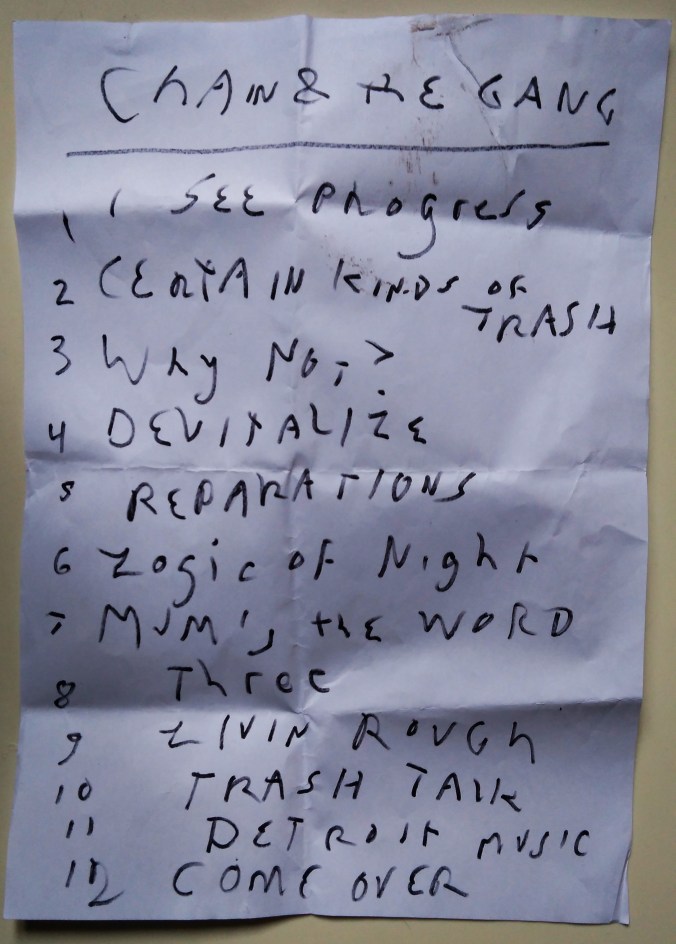 CHAIN & thE GANG
1 I SEE progress
2 CERTAIN KINDS OF
TRASH
3 Why NOT?
4 DEVITALIZE
5 REPARATIONS
6 Logic of Night
7 MUM'S thE WORD
8 Three
9 LIVIN ROUGh
10 TRASH TALK
11 DETROIT MUSIC
12 COME OVER